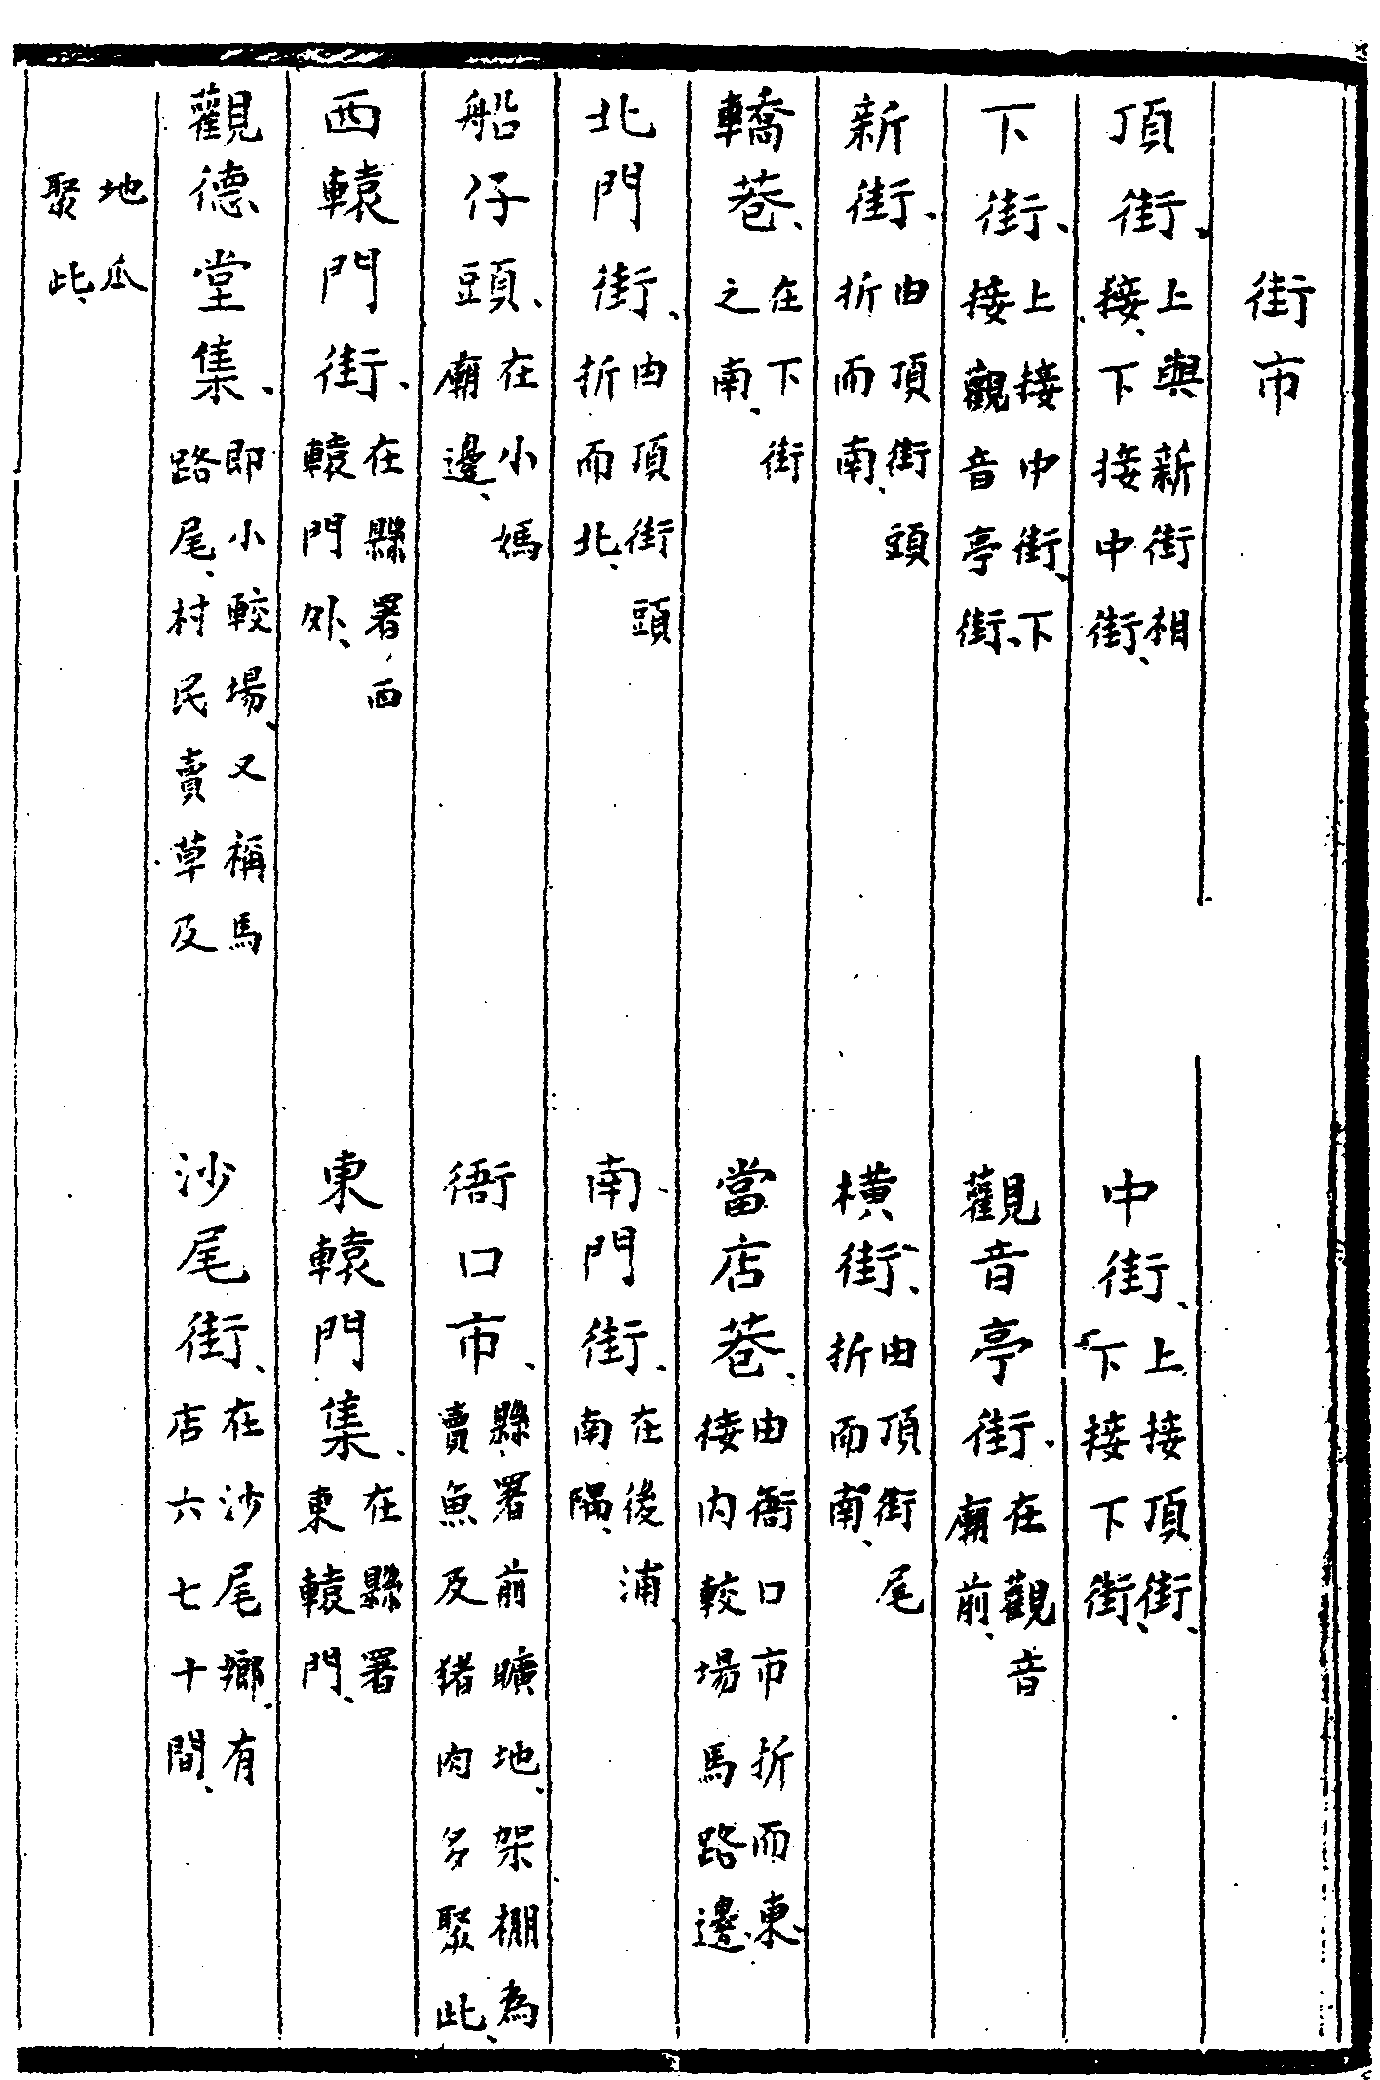 街市
頂街、上與新街相接、下接中街、　中街、上接頂街、下接下街、
下街、上接中街、下接觀音亭街、　觀音亭街、在觀音廟前、
新街、由頂街頭折而南、　橫街、由頂街尾折而南、
轎巷、在下街之南、　當店巷、由衙口市折而東、接內較場馬路邊、
北門街、由頂街頭折而北、　南門街、在後浦南隅、
船仔頭、在小媽廟邊、　衙口市、縣署前曠地、架棚為賣魚及豬肉多聚此、
西轅門街、在縣署西轅門外、　東轅門集、在縣署東轅門、
觀德堂集、即小較場、又稱馬路尾、村民賣草及　沙尾街、在沙尾鄉、有店六七十間、
地瓜聚此、